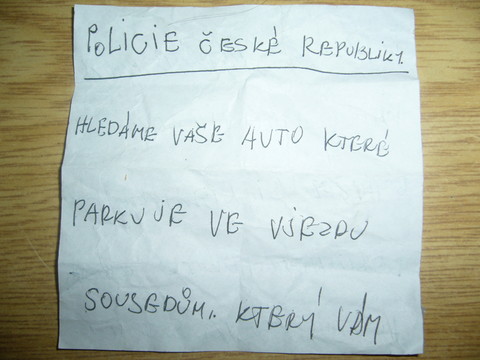 POLICIE ČESKÉ REPUBLIKY.
HLEDÁME VAŠE AUTO KTERÉ
PARKUJE VE VJEZDU
SOUSEDŮM. KTERÝ VÁM